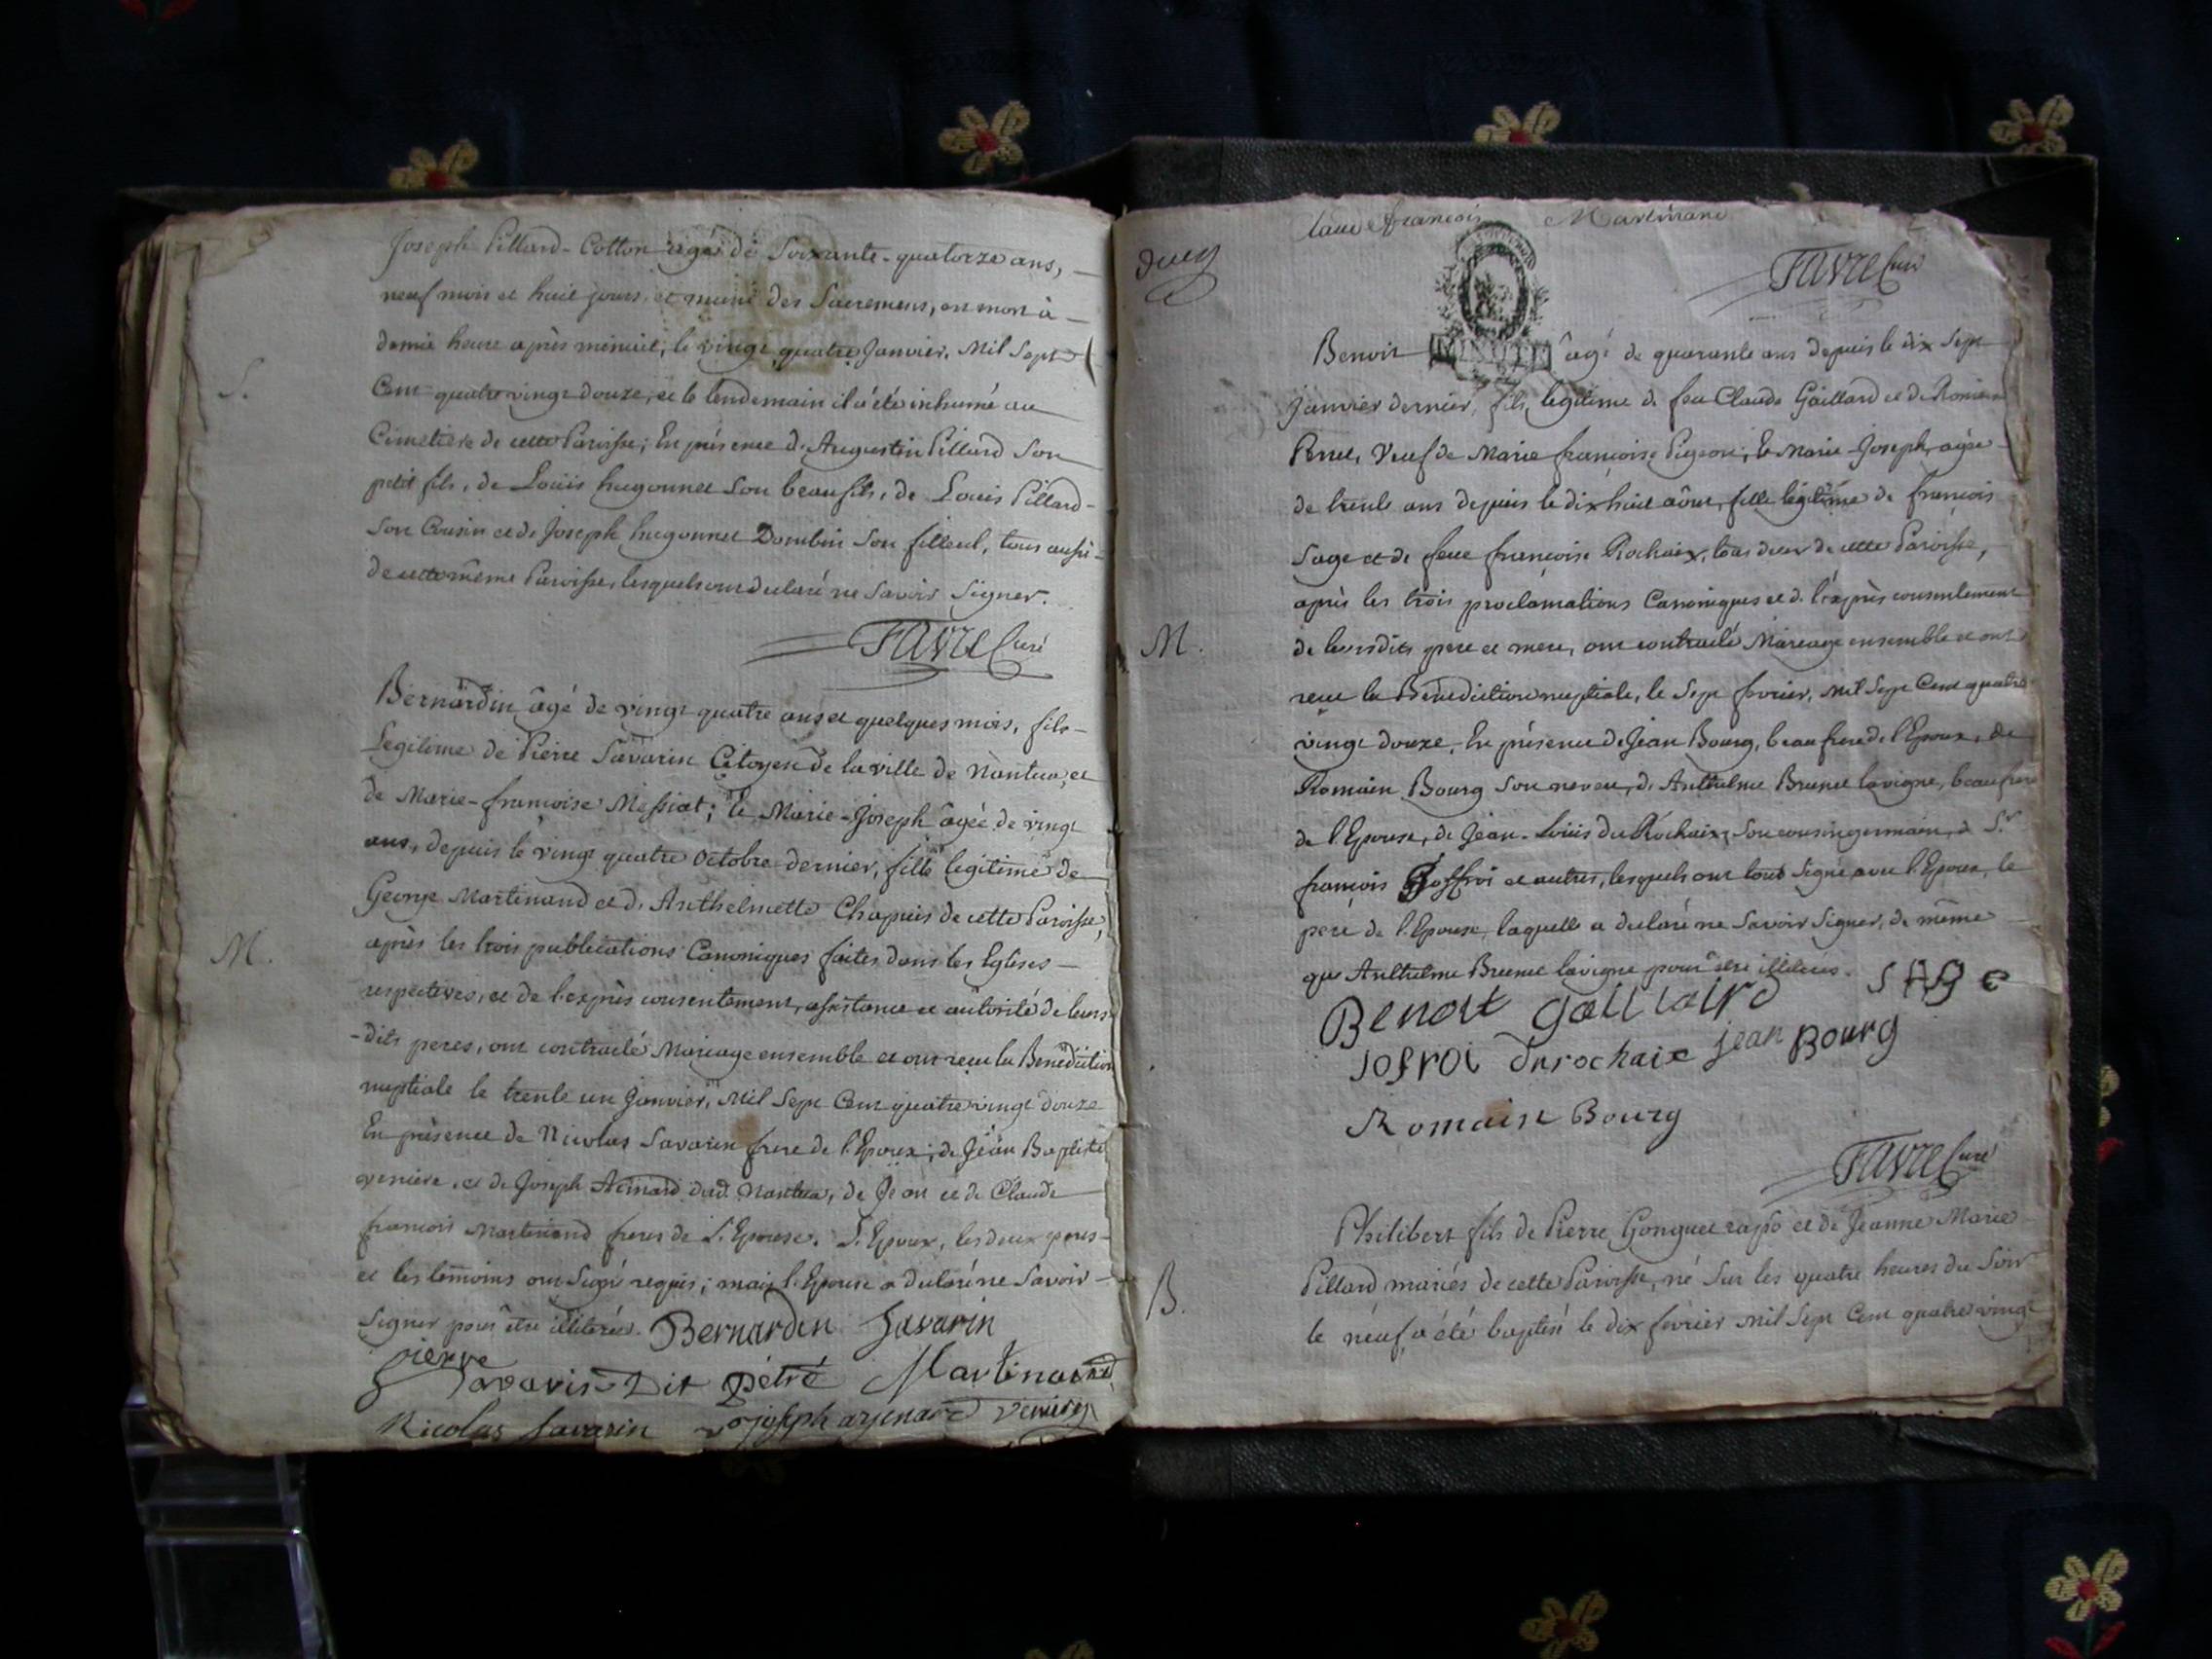 Joseph Pillard-Cotton agé de Soixante-quatorze ans,
neuf mois et huit jours, et muni des Sacremens, est mort à
demie heure après minuit, le vingt quatre Janvier, Mil Sept
S.
Cent quatre vingt douze, et le lendemain il a été inhumé au
Cimetiere de cette Paroisse; En présence d'Augustin Pillard Son
petit fils, de Loüis hugonnet Son beaufils, de Louis Pillard
Son Cousin et de Joseph hugonnet Dombin Son filleul, tous aussi
de cette même Paroisse, lesquels ont declaré ne Savoir Signer.
Favre Curé
Bernardin âgé de vingt quatre ans et quelques mois, fils
Legitime de Pierre Savarin Citoyen de la ville de Nantua, et
de Marie-françoise Messiat; Et Marie-Joseph âgée de vingt
ans, depuis le vingt quatre Octobre dernier, fille legitime de
George Martinand et d'Anthelmette Chapuis de cette Paroisse,
M.
après les trois publications Canoniques faites dans les Eglises
respectives, et de l'exprès consentement, assistance et autorité de leurs
-dits peres, ont contracté Mariage ensemble et ont reçu la Benediction
nuptiale le trente un Janvier, Mil Sept Cent quatre vingt douze
En présence de Nicolas Savarin frere de l'Epoux, de Jean Baptiste
veniere, et de Joseph dud. Nantua, de Jean et de Claude
francois Martinand freres de l'Epouse. L'Epoux, les deux peres
et les témoins ont Signé requis; mais l'Epouse a declaré ne Savoir
Signer pour être illiterée. Bernardin Savarin
pierre
Savarin Dit pétré Martinand
Nicolas Savarin joseph veniere
Claude francois Martinand
Favre Curé
Benoit âgé de quarante ans depuis le dix Sept
Janvier dernier, fils legitime de feu Claude Gaillard et de
Veuf de Marie françoise Pigeon; Et Marie Joseph, agée
de trente ans depuis le dix huit aôut, fille légitime de françois
Sage et de feue françoise Rochaix, tous deux de cette Paroisse,
après les trois proclamations Canoniques et de l'exprès consentement
M.
de leursdits pere et mere, ont contracté Mariage ensemble et ont
reçu la Bénédiction nuptiale, le Sept fevrier, Mil Sept Cent quatre
vingt douze, En présence de Jean Bourg, beaufrere de l'Epoux, de
Romain Bourg Son neveu, d'Anthelme Brunet lavigne, beaufrere
de l'Epouse, de Jean-Loüis du Rochaix, Son cousin germain, et Sr
françois Joffroi et autres, lesquels ont tous Signé avec l'Epoux, le
pere de l'Epouse, laquelle a declaré ne Savoir Signer, de même
que Anthelme Brunet lavigne pour être illiterés.
SAGE
Benoit Gaillaird
Jofroi durochaix jean Bourg
Romain Bourg
Favre Curé
Philibert fils de Pierre Gonguet et de Jeanne Marie
Pillard mariés de cette Paroisse, né Sur les quatre heures du Soir
B.
le neuf, a été baptisé le dix fevrier Mil Sept Cent quatre vingt